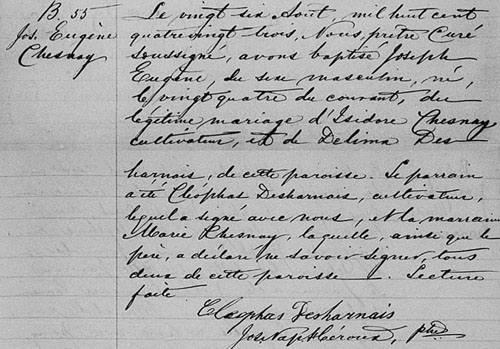 B. 55
Jos. Eugène
Chesnay
Le vingt six Août, mil huit cent
quatre vingt trois, Nous, prêtre Curé
soussigné, avons baptisé Joseph
Eugène, du sexe masculin, né,
le vingt quatre du courant, du
légitime mariage d'Isidore Chesnay
cultivateur, et de Delima Des-
harnais, de cette paroisse. Le parrain
a été Cléophas Desharnais, cultivateur,
lequel a signé avec nous, et la marraine
Marie Chesnay, laquelle, ainsi que le
père, a déclaré ne savoir signer, tous
deux de cette paroisse. Lecture
faite.
Cleophas Desharnais
Jos. Nap. Héroux, ptre